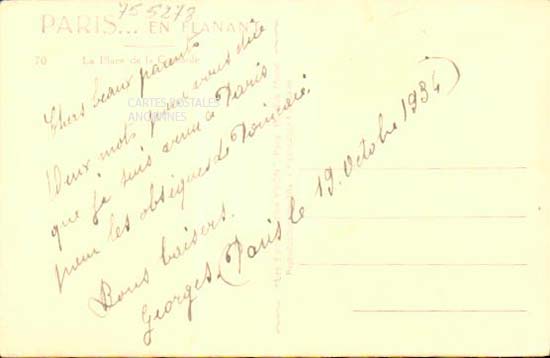 755273
PARIS... EN FLANANT
70 La Place de la Concorde
CARTES POSTALES
ANCIENNES
Chers beaux parents
Deux mots pour vous dire
que je suis venu à Paris
pour les obsèques de Poincaré.
Bons baisers.
Georges (Paris le 19. Octobre 1934)